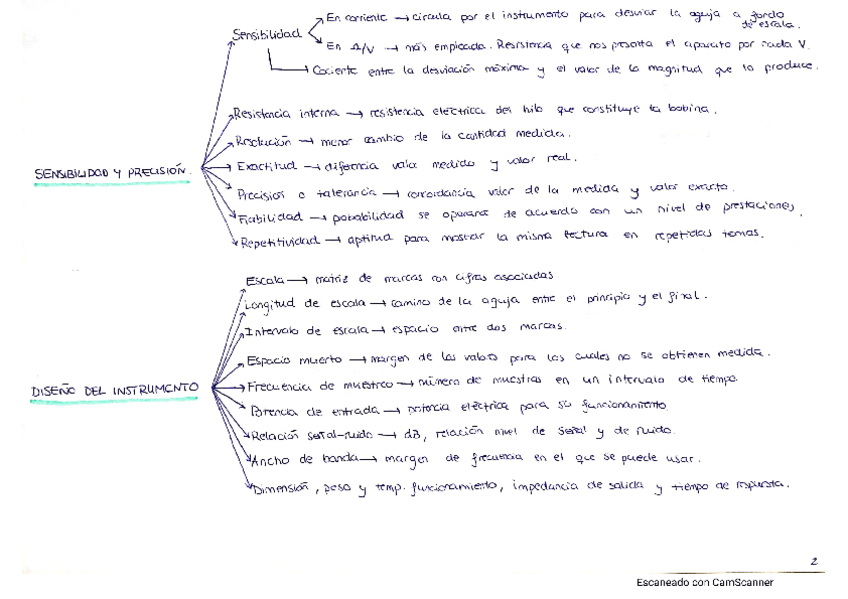 Sensibilidad
En corriente → circula por el instrumento para desviar la aguja a fondo de escala.
En Ω/V → más empleada. Resistencia que nos presenta el aparato por cada V.
→ Cociente entre la desviación máxima y el valor de la magnitud que lo produce.
Resistencia interna → resistencia eléctrica del hilo que constituye la bobina.
Resolución → menor cambio de la cantidad medida.
SENSIBILIDAD Y PRECISIÓN.
Exactitud → diferencia valor medido y valor real.
Precisión o tolerancia → concordancia valor de la medida y valor exacto.
Fiabilidad → probabilidad se operará de acuerdo con un nivel de prestaciones.
Repetitividad → aptitud para mostrar la misma lectura en repetidas tomas.
Escala → matriz de marcas con cifras asociadas
Longitud de escala → camino de la aguja entre el principio y el final.
Intervalo de escala → espacio entre dos marcas.
Espacio muerto → margen de los valores para los cuales no se obtienen medida.
DISEÑO DEL INSTRUMENTO
Frecuencia de muestreo → número de muestras en un intervalo de tiempo.
Potencia de entrada → potencia eléctrica para su funcionamiento.
Relación señal-ruido → dB, relación nivel de señal y de ruido.
Ancho de banda → margen de frecuencia en el que se puede usar.
Dimensión, peso y temp. funcionamiento, impedancia de salida y tiempo de respuesta.
2
Escaneado con CamScanner